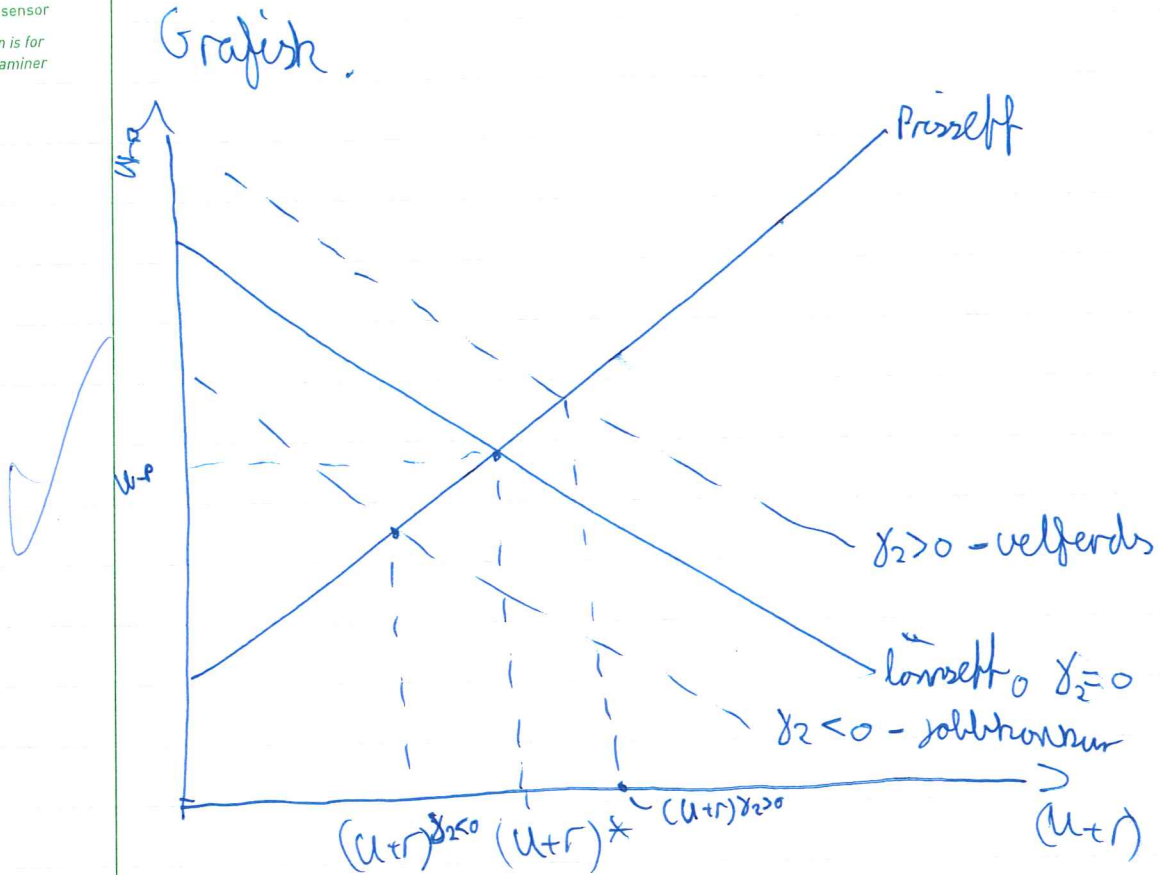 sensor
n is for
aminer
Grafisk.
w-p
Prissett
w-p
γ₂>0 - velferds
lønnsett₀ γ₂=0
γ₂<0 - jobbkonkur
(u+r)γ₂<0 (u+r)* (u+r)γ₂>0
(u+r)